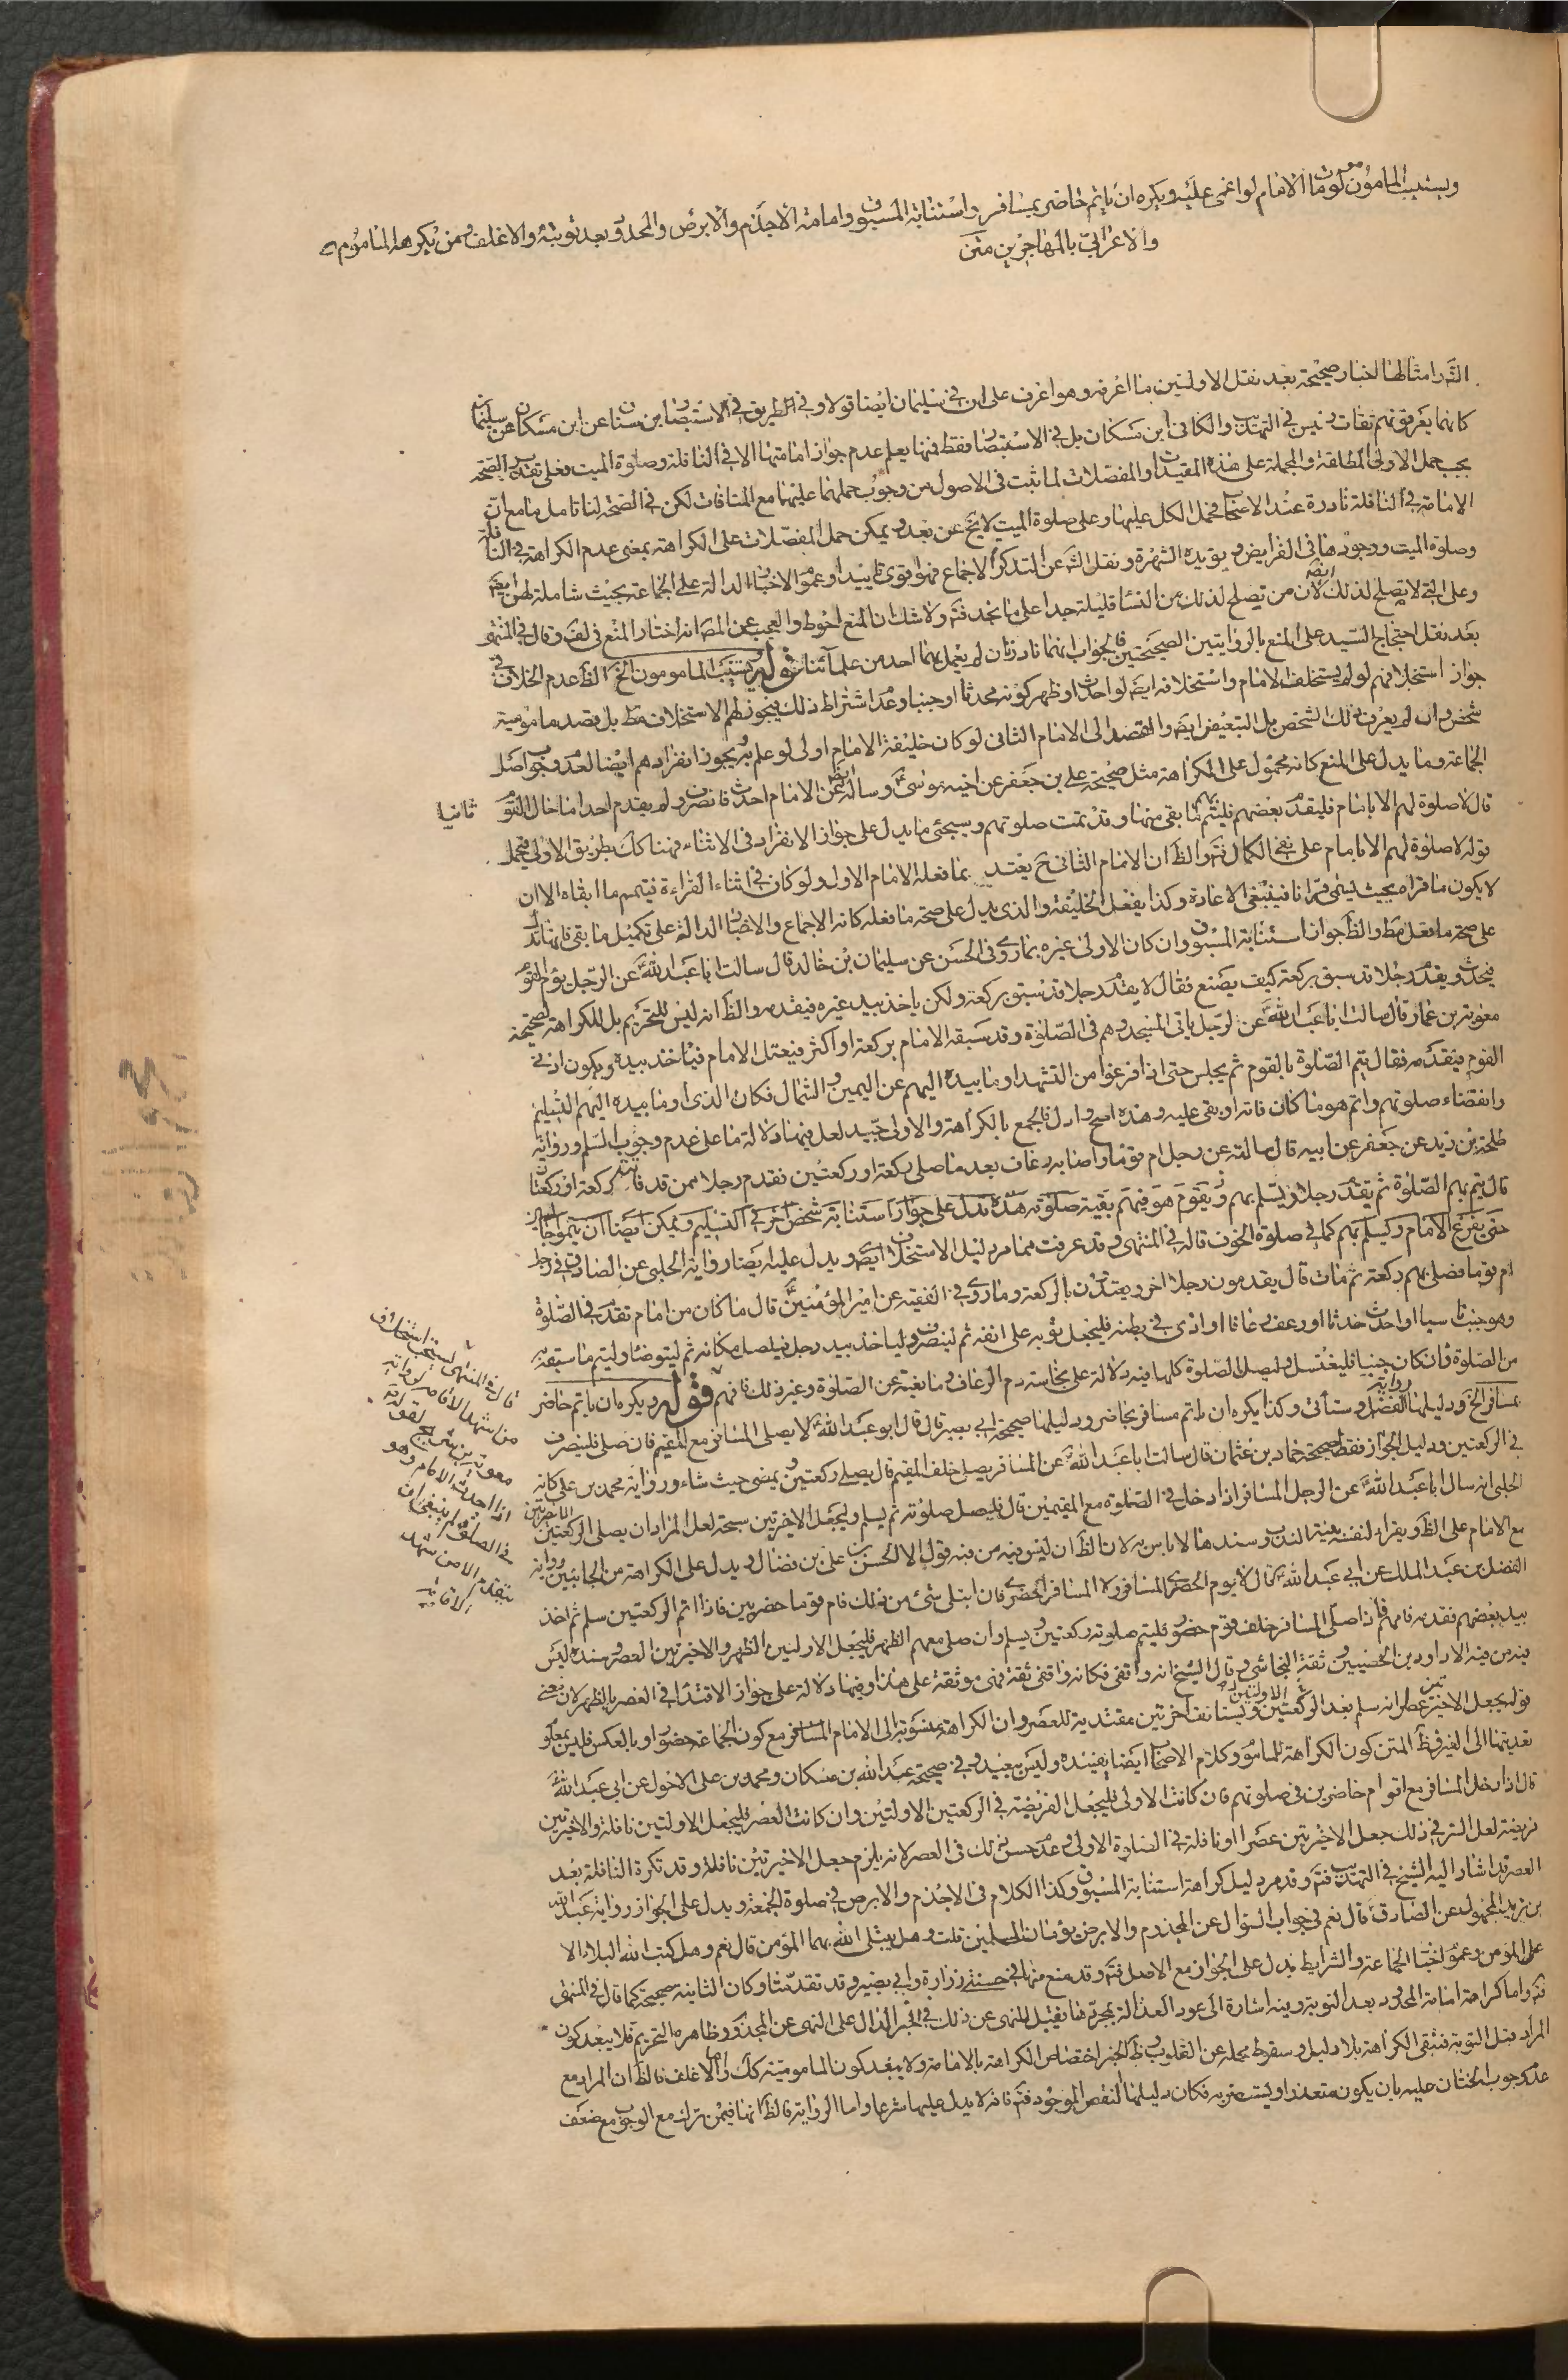 ويستنيب المامومون لو مات الامام او اغمى عليه ويكره ان ياتم حاضر بمسافر واستنابة المسبوق وامامة الاجذم والابرص والمحدود بعد توبته والاغلف ومن يكرهه المامومم
والاعرابي بالمهاجرين متن
امثالها اخبار صحيحة بعد نقل الاولتين ما اعرفه وهو اعرف على ان في سليمان ايضا قولا وفي الطريق في الاستبصار ابن سنان عن ابن مسكان عن سليمان
كانهما يعرفونهم ثقات وليس في التهذيب والكافى ابن مسكان بل في الاستبصار فقط فمنها يعلم عدم جواز امامتها الا في النافلة وصلوة الميت فعلى تقدير الصحة
يجب حمل الاولى المطلقة والمجملة على هذه المقيدات والمفصلات لما ثبت فى الاصول من وجوب حملهما عليهما مع المنافات لكن في الصحة لنا تامل ما مع ان
الامامة في النافلة نادرة عند الاصحاب فحمل الكل عليها وعلى صلوة الميت لا يخ عن بعد ويمكن حمل المفصلات على الكراهة بمعنى عدم الكراهة في النافلة
وصلوة الميت ووجودها فى الفرايض ويؤيده الشهرة ونقل الشه عن التذكرة الاجماع فهو اقوى تاييدا وعموم الاخبار الدالة على الجماعة بحيث شاملة لهن ايضا
وعلى التي لا يصلح لذلك لان من تصلح لذلك من النساء قليلة جدا على ما نجد فتم ولا شك ان المنع احوط والعجب عن المصـ انه اختار المنع فى لف وقال في المنتهى
بعد نقل احتجاج السيد على المنع بالروايتين الصحيحتين فالجواب انهما نادرتان لم يعمل بهما احد من علمائنا قوله ويستنيب المامومون الخ الظ عدم الخلاف في
جواز استخلافهم لو لم يستخلف الامام واستخلافه ايضا لو احدث او ظهر كونه محدثا او جنبا وعدم اشتراط ذلك فيجوز لهم الاستخلاف مط بل بقصد مامومية
شخص وان لم يعرف ذلك الشخص بل التبعيض ايضا والقصد الى الامام الثانى لو كان خليفة الامام اولى لو علم به ويجوز انفرادهم ايضا لعدم وجوب اصل
الجماعة وما يدل على المنع كانه محمول على الكراهة مثل صحيحة علي بن جعفر عن اخيه موسى ع وساله ايضا عن الامام احدث فانصرف ولم يقدم احدا ما حال القوم
قال لا صلوة لهم الا بامام فليقدم بعضهم فليتم بهم ما بقى منها وقد تمت صلوتهم وسيجئ ما يدل على جواز الانفراد فى الاثناء فهنا كك بطريق الاولى فيحمل
ثانيا
قوله لا صلوة لهم الا بامام على نفي الكمال فتم والظ ان الامام الثانى ح يعتد بما فعله الامام الاول ولو كان في اثناء القراءة فيتمم ما ابقاه الا ان
لا يكون ما قراه بحيث يسمى قرانا فينبغى الاعادة وكذا يفعل الخليفة والذى يدل على صحة ما فعله كانه الاجماع والاخبار الدالة على تكميل ما بقى فانها تدل
على صحة ما فعل مط والظ جواز استنابة المسبوق وان كان الاولى غيره بما روى فى الحسن عن سليمان بن خالد قال سالت ابا عبد الله ع عن الرجل يؤم القوم
فيحدث ويقدم رجلا قد سبق بركعة كيف يصنع فقال لا يقدم رجلا قد سبق بركعة ولكن ياخذ بيد غيره فيقدمه والظ انه ليس للتحريم بل للكراهة لصحيحة
معوية بن عمار قال سالت ابا عبد الله ع عن الرجل ياتى المسجد وهم فى الصلوة وقد سبقه الامام بركعة او اكثر فيعتل الامام فياخذ بيده ويكون ادنى
القوم فيقدمه فقال يتم الصلوة بالقوم ثم يجلس حتى اذا فرغوا من التشهد اوما بيده اليهم عن اليمين والشمال فكان الذى اوما بيده اليهم التسليم
وانقضاء صلوتهم واتم هو ما كان فاته او بقى عليه وهذه اصح وادل فالجمع بالكراهة والاولى جيد لعل فيهما دلالة ما على عدم وجوب السلم ورواية
طلحة بن زيد عن جعفر عن ابيه قال سالته عن رجل ام قوما واصابه رعاف بعد ما صلى ركعة او ركعتين فقدم رجلا ممن قد فاته ركعة او ركعتان
قال يتم بهم الصلوة ثم يقدم رجلا ويسلم بهم ويقوم هو فيتم بقية صلوته هذه تدل على جواز استنابة شخص اخر في التسليم ويمكن ايضا ان يتموا
حتى يفرغ الامام ويسلم بهم كما في صلوة الخوف قاله في المنتهى وقد عرفت مما مر دليل الاستخلاف ايضا ويدل عليه ايضا رواية الحلبى عن الصادق في رجل
ام قوما فصلى بهم ركعة ثم مات قال يقدمون رجلا اخر ويعتدون بالركعة وما روى في الفقيه عن امير المؤمنين ع قال ما كان من امام تقدم في الصلوة
وهو جنب ناسيا او احدث حدثا او رعف رعافا او اذى في بطنه فليجعل ثوبه على انفه ثم لينصرف ولياخذ بيد رجل فيصل مكانه ثم ليتوضا وليتم ما سبقه به
من الصلوة وان كان جنبا فليغتسل وليصل الصلوة كلها فيه دلالة على نجاسة دم الرعاف ومانعيته عن الصلوة وغير ذلك فافهم قوله ويكره ان ياتم حاضر
بمسافر الخ ودليلها رواية الفضل وستأتى وكذا يكره ان ياتم مسافر بحاضر ودليلها صحيحة ابي بصير قال قال ابو عبد الله ع لا يصلى المسافر مع المقيم فان صلى فلينصرف
في الركعتين ودليل الجواز فقط صحيحة حماد بن عثمان قال سالت ابا عبد الله ع عن المسافر يصلى خلف المقيم قال يصلى ركعتين ويمضى حيث شاء ورواية محمد بن علي كانه
الحلبى انه سال ابا عبد الله ع عن الرجل المسافر اذا دخل في الصلوة مع المقيمين قال فليصل صلوته ثم يسلم وليجعل الاخيرتين سبحة لعل المراد ان يصلى الركعتين الاخيرتين
مع الامام على الظ ويقراء لنفسه بنية الندب وسندها لا باس به لان الظ ان ليس فيه من فيه قول الا الحسن بن على بن فضال ويدل على الكراهة من الجانبين رواية
الفضل بن عبد الملك عن ابي عبد الله ع قال لا يؤم الحضرى المسافر ولا المسافر الحضرى فان ابتلى بشئ من ذلك فام قوما حضريين فاذا اتم الركعتين سلم ثم اخذ
بيد بعضهم فقدمه فامهم فاذا صلى المسافر خلف قوم حضور فليتم صلوته ركعتين ويسلم وان صلى معهم الظهر فليجعل الاولتين الظهر والاخيرتين العصر وسنده ليس
فيه من فيه الا داود بن الحصين وثقه النجاشى وقال الشيخ انه واقفى فكانه واقفى ثقة فهى موثقة على هذا وفيها دلالة على جواز الاقتداء في العصر بالظهر لان معنى
قوله يجعل الاخيرتين عصرا انه سلم بعد الركعتين الاولتين ويستانف اخرتين مقتدية للعصر وان الكراهة منسوبة الى الامام المسافر مع كون الجماعة حضورا وبالعكس فليس بمعلوم
تعديتها الى الغير فظ المتن كون الكراهة للماموم وكلام الاصحاب ايضا يفيده وليس ببعيد وفي صحيحة عبد الله بن مسكان ومحمد بن على الاحول عن ابى عبد الله ع
قال اذا دخل المسافر مع اقوام حاضرين فى صلوتهم فان كانت الاولى فليجعل الفريضة في الركعتين الاولتين وان كانت العصر فليجعل الاولتين نافلة والاخيرتين
فريضة لعل السر في ذلك جعل الاخيرتين عصرا او نافلة في الصلوة الاولى وعدم حسن ذلك فى العصر لانه يلزم جعل الاخيرتين نافلة وقد تكره النافلة بعد
العصر قد اشار اليه الشيخ في التهذيب فتم وقد مر دليل كراهة استنابة المسبوق وكذا الكلام فى الاجذم والابرص في صلوة الجمعة ويدل على الجواز رواية عبد الله
بن يزيد المجهول عن الصادق ع قال نعم في جواب السؤال عن المجذوم والابرص يؤمان المسلمين قلت وهل يبتلى الله بهما المؤمن قال نعم وهل كتب الله البلاء الا
على المؤمن وعموم اخبار الجماعة والشرايط يدل على الجواز مع الاصل فتم وقد منع منها في حسنتي زرارة وابي بصير وقد تقدمتا وكان الثانية صحيحة كما قال في المنتهى
فتم واما كراهة امامة المحدود بعد التوبة وفيه اشارة الى عود العدالة بمجردها فقيل للنهى عن ذلك في الخبر الدال على النهى عن المجذوم وظاهره التحريم فلا يبعد كون
المراد قبل التوبة فتبقى الكراهة بلا دليل وسقوط محله عن القلوب وظ الخبر اختصاص الكراهة بالامامة ولا يبعد كون المامومية كك واما الاغلف فالظ ان المراد مع
عدم وجوب الختان عليه بان يكون متعذرا او يستضر به فكان دليلها النقص الموجود فتم فانه لا يدل عليها شرعا واما الرواية فالظ انها فيمن ترك مع الوجوب مع ضعف
قال في المنتهى يستحب استخلاف
من شهد الاقامة لرواية
معوية بن شريح لقوله
اذا احدث الامام وهو
في الصلوة لم ينبغ ان
يتقدم الا من شهد
الاقامة